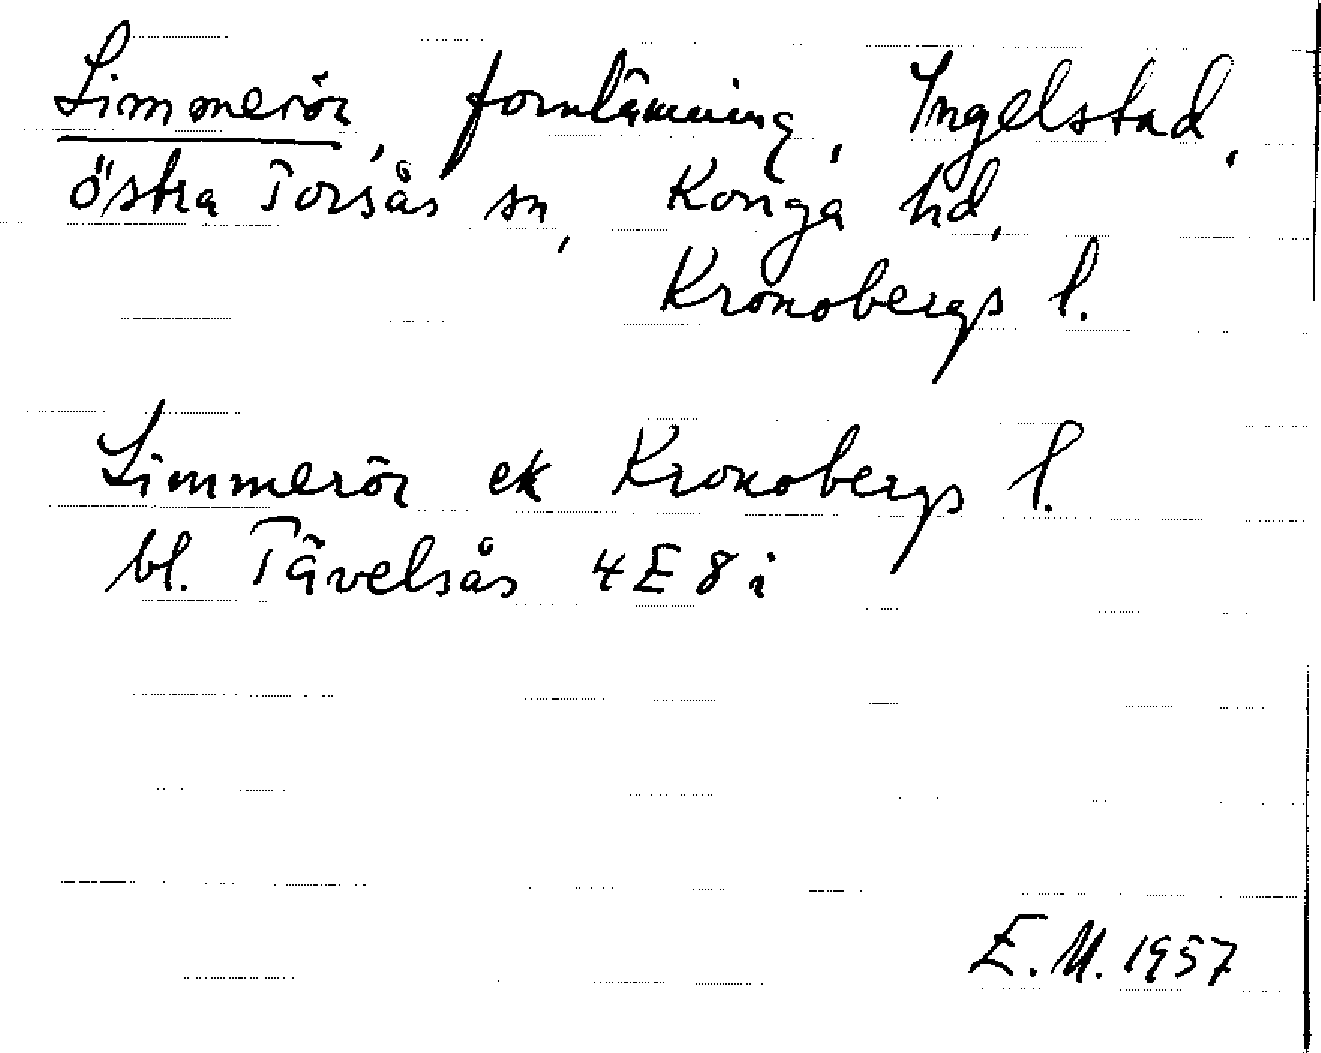 Limmerör, fornlämning, Ingelstad,
östra Torsås sn, Konga hd,
Kronobergs l.
Limmerör ek Kronobergs l.
bl. Tävelsås 4E8i
E.M. 1957